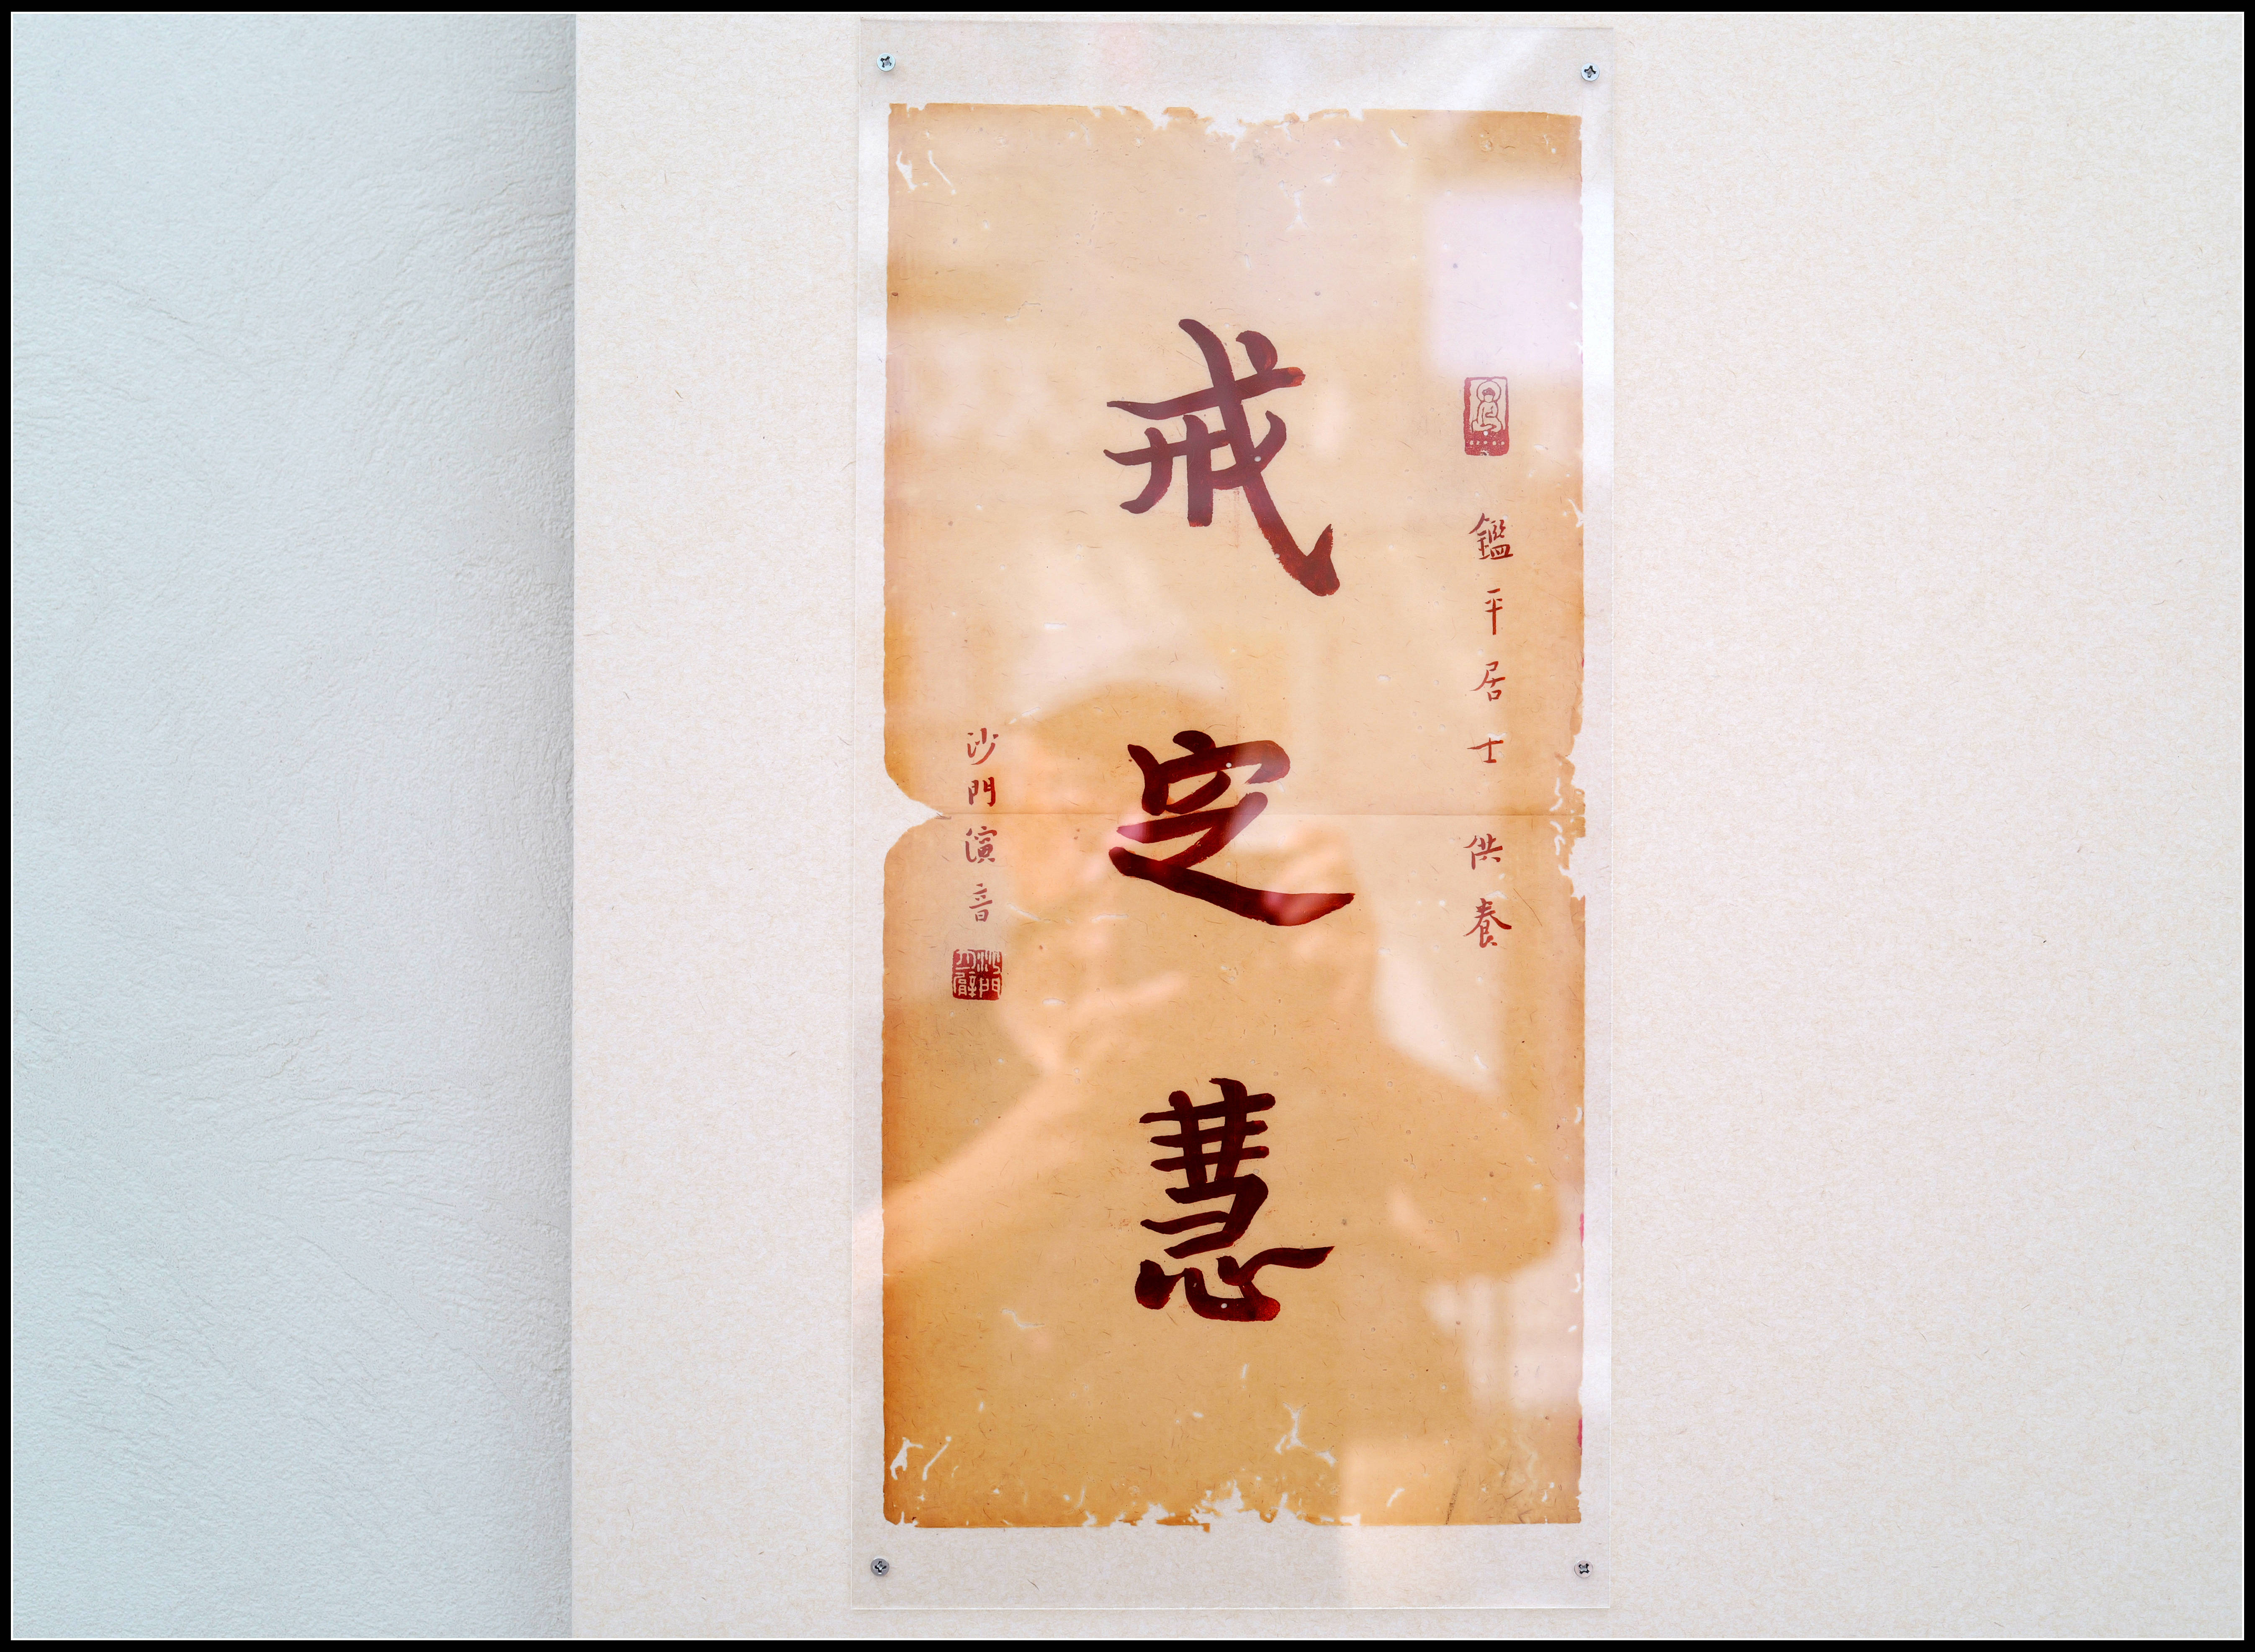 鑑平居士供養
戒定慧
沙門演音